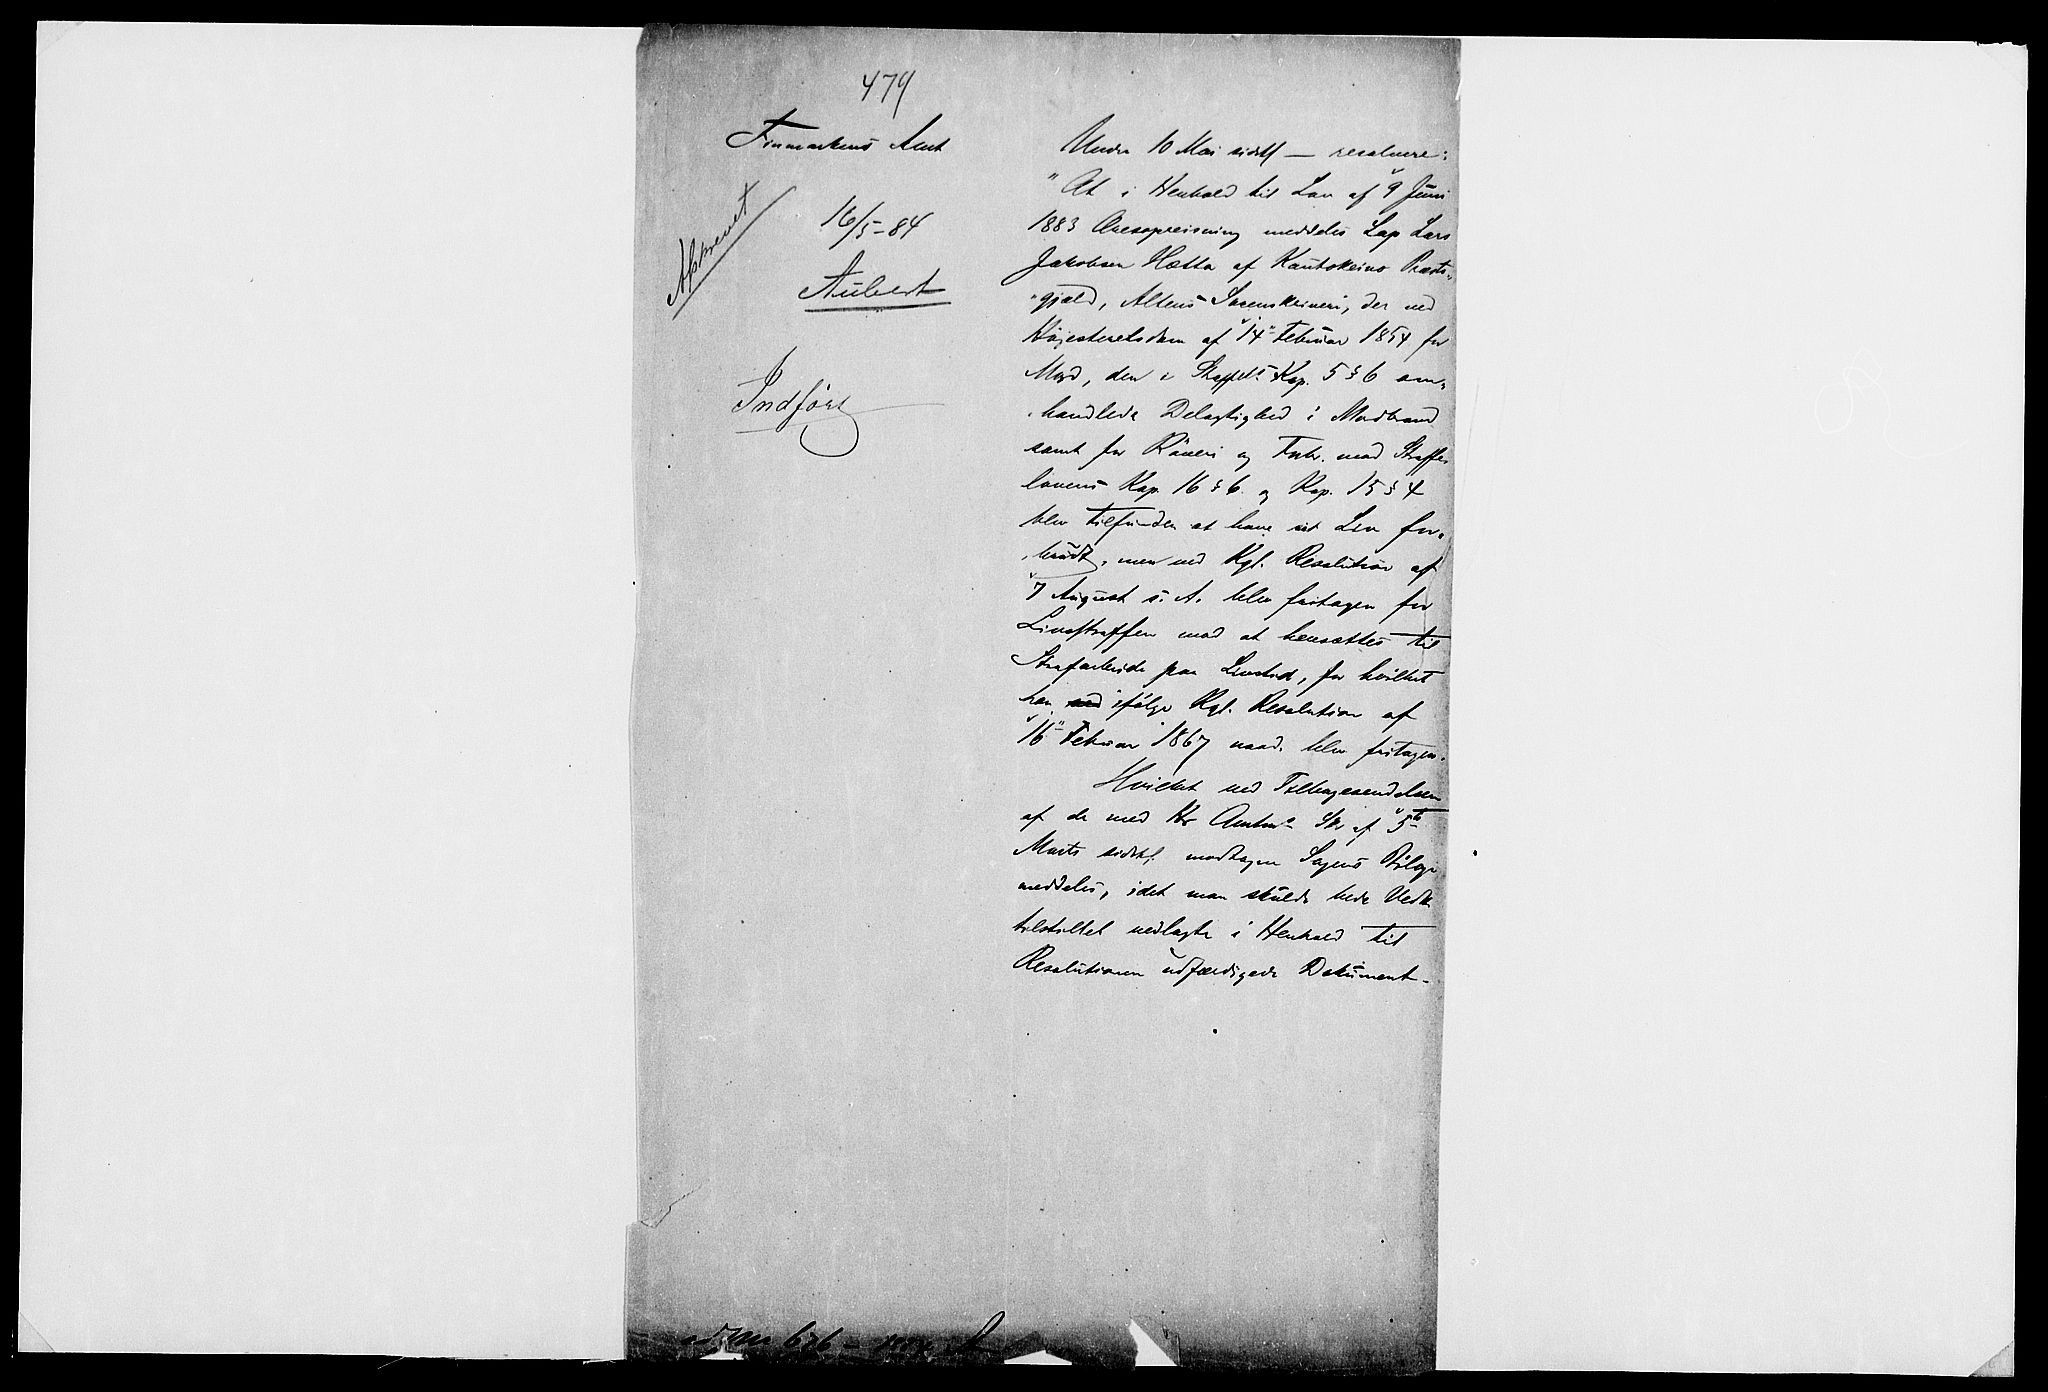 479
Finmarkens Amt
Afskrevet
16/5-84
Aubert
Indført
Under 10 Mai sidstl — resolvere:
"At i Henhold til Lov af 9 Juni
1883 Æresopreisning meddeles Lap Lars
Jakobsen Hætta af Kautokeino Præste-
"gjæld, Altens Sorenskriveri, der ved
Høiesteretsdom af 14 Februar 1854 for
Mord, den i Straffel.s Kap. 5 § 6 om-
handlede Delagtighed i Mordbrand
samt for Røveri og Forbr. mod Straffe
lovens Kap. 16 § 6. og Kap. 15 § 4
blev tilfunden at have sit Liv for-
brudt, men ved Kgl. Resolution af
7 August s. A. blev fritagen for
Livsstraffen mod at hensættes til
Strafarbeide paa Livstid, for hvilket
han ved ifølge Kgl. Resolution af
16 Februar 1867 naad. blev fritagen.
Hvilket ved Tilbagesendelsen
af de med Hr Amtm.s Skr af 5te
Marts sidstl. modtagne Sagens Bilage
meddeles, idet man skulde bede Vedk
tilstillet vedlagte i Henhold til
Resolutionen udfærdigede Dokument.
ad Jnr 676 - 1884 A